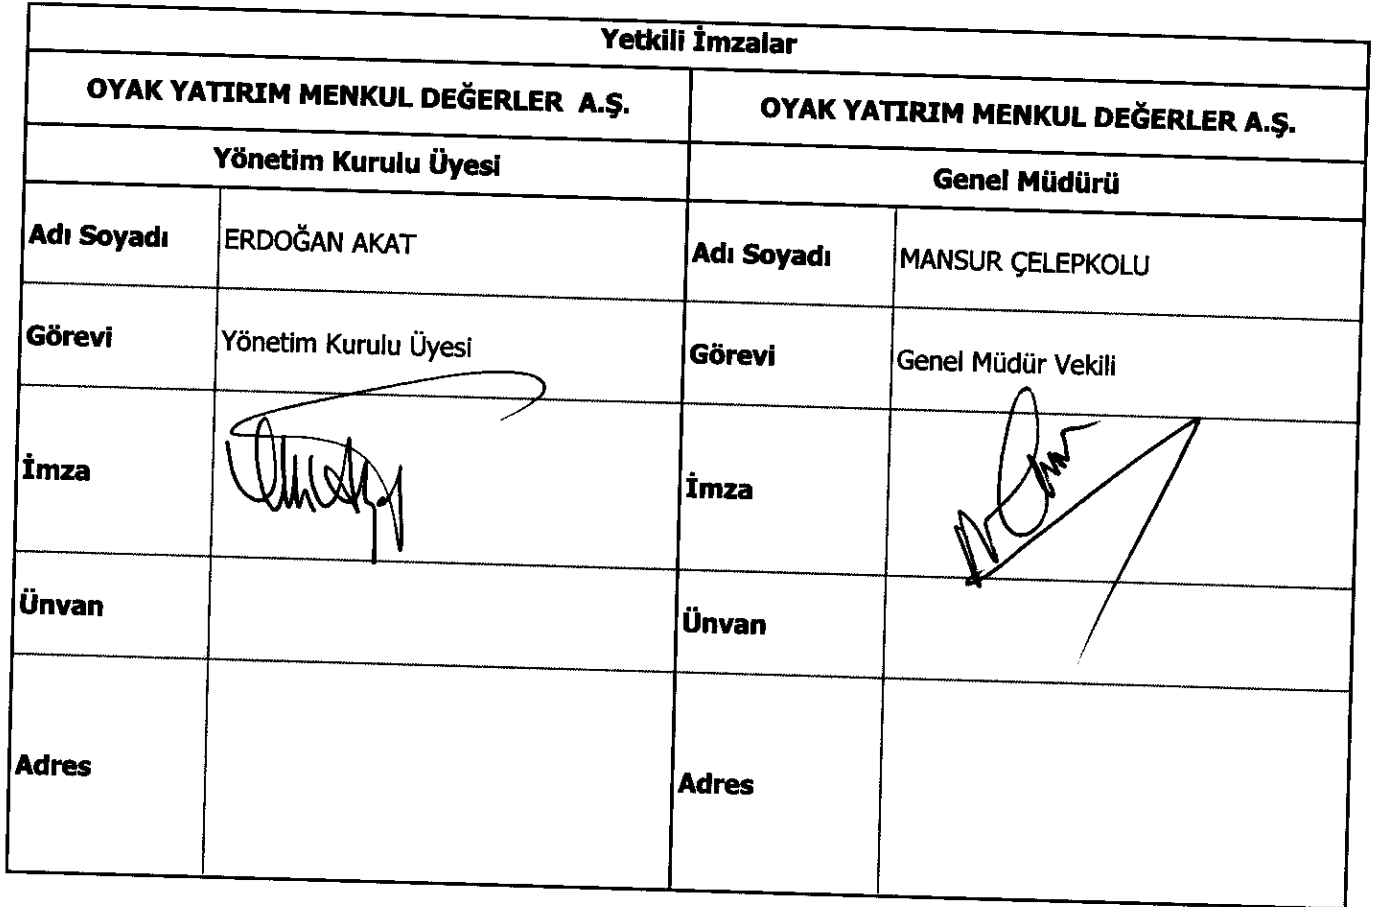 Yetkili İmzalar
OYAK YATIRIM MENKUL DEĞERLER A.Ş.
OYAK YATIRIM MENKUL DEĞERLER A.Ş.
Yönetim Kurulu Üyesi
Genel Müdürü
Adı Soyadı
ERDOĞAN AKAT
Adı Soyadı
MANSUR ÇELEPKOLU
Görevi
Yönetim Kurulu Üyesi
Görevi
Genel Müdür Vekili
İmza
İmza
Ünvan
Ünvan
Adres
Adres